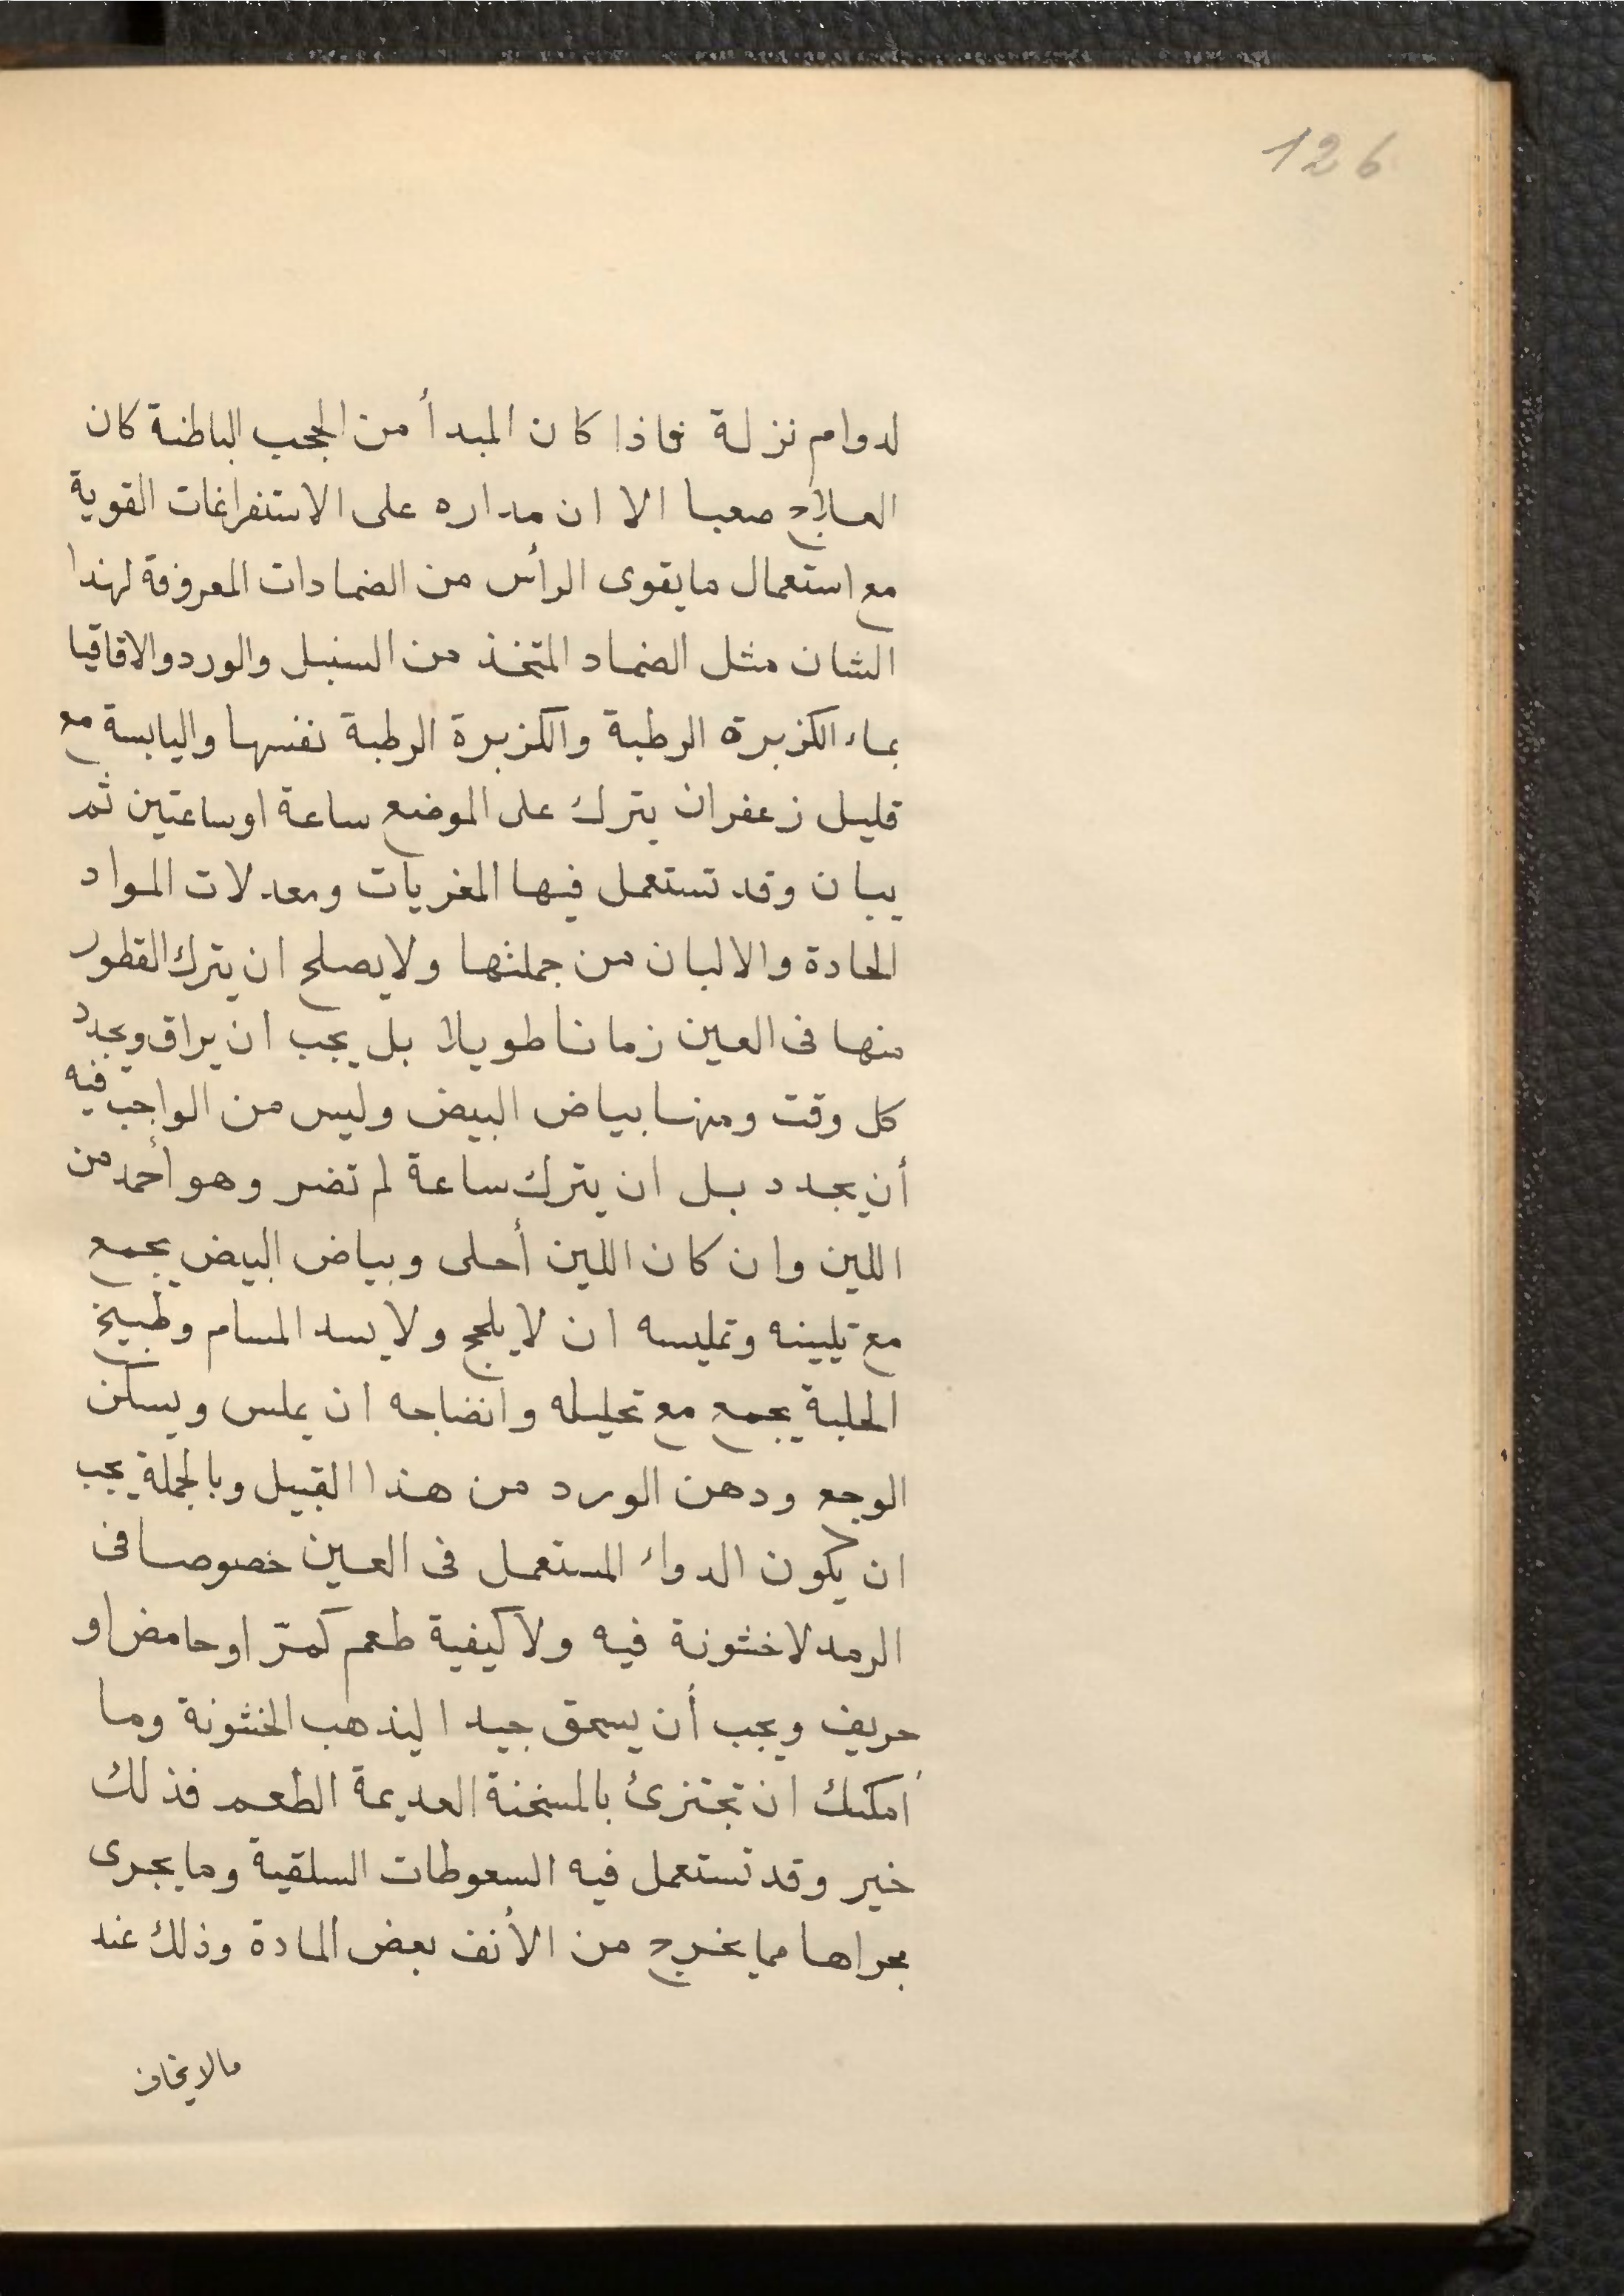 126
لدوام نزلة فاذا كان المبدأ من الحجب الباطنة كان
العلاج صعبا الا ان مداره على الاستفراغات القوية
مع استعمال ما يقوى الرأس من الضمادات المعروفة لهذا
الشان مثل الضماد المتخذ من السنبل والورد والاقاقيا
بماء الكزبرة الرطبة والكزبرة الرطبة نفسها واليابسة مع
قليل زعفران يترك على الموضع ساعة اوساعتين ثم
يبان وقد تستعمل فيها المغريات ومعدلات المواد
الحادة والالبان من جملتها ولا يصلح ان يترك القطور
منها فى العين زمانا طويلا بل يجب ان يراق ويجدد
كل وقت ومنها بياض البيض وليس من الواجب فيه
أن يجدد بل ان يترك ساعة لم تضر وهو أحمد من
اللبن وان كان اللبن أحلى وبياض البيض يجمع
مع تليينه وتمليسه ان لا يلحج ولا يسد المسام وطبيخ
الحلبة يجمع مع تحليله وانضاجه ان يملس ويسكن
الوجع ودهن الورد من هذا القبيل وبالجملة يجب
ان يكون الدواء المستعمل فى العين خصوصا فى
الرمد لا خشونة فيه ولا كيفية طعم كمرّ او حامض او
حريف ويجب أن يسحق جيدا ليذهب الخشونة وما
أمكنك ان تجتزئ بالمسخنة العديمة الطعم فذلك
خير وقد تستعمل فيه السعوطات السلقية وما يجرى
مجراها مما يخرج من الأنف بعض المادة وذلك عند
مالا يخاف